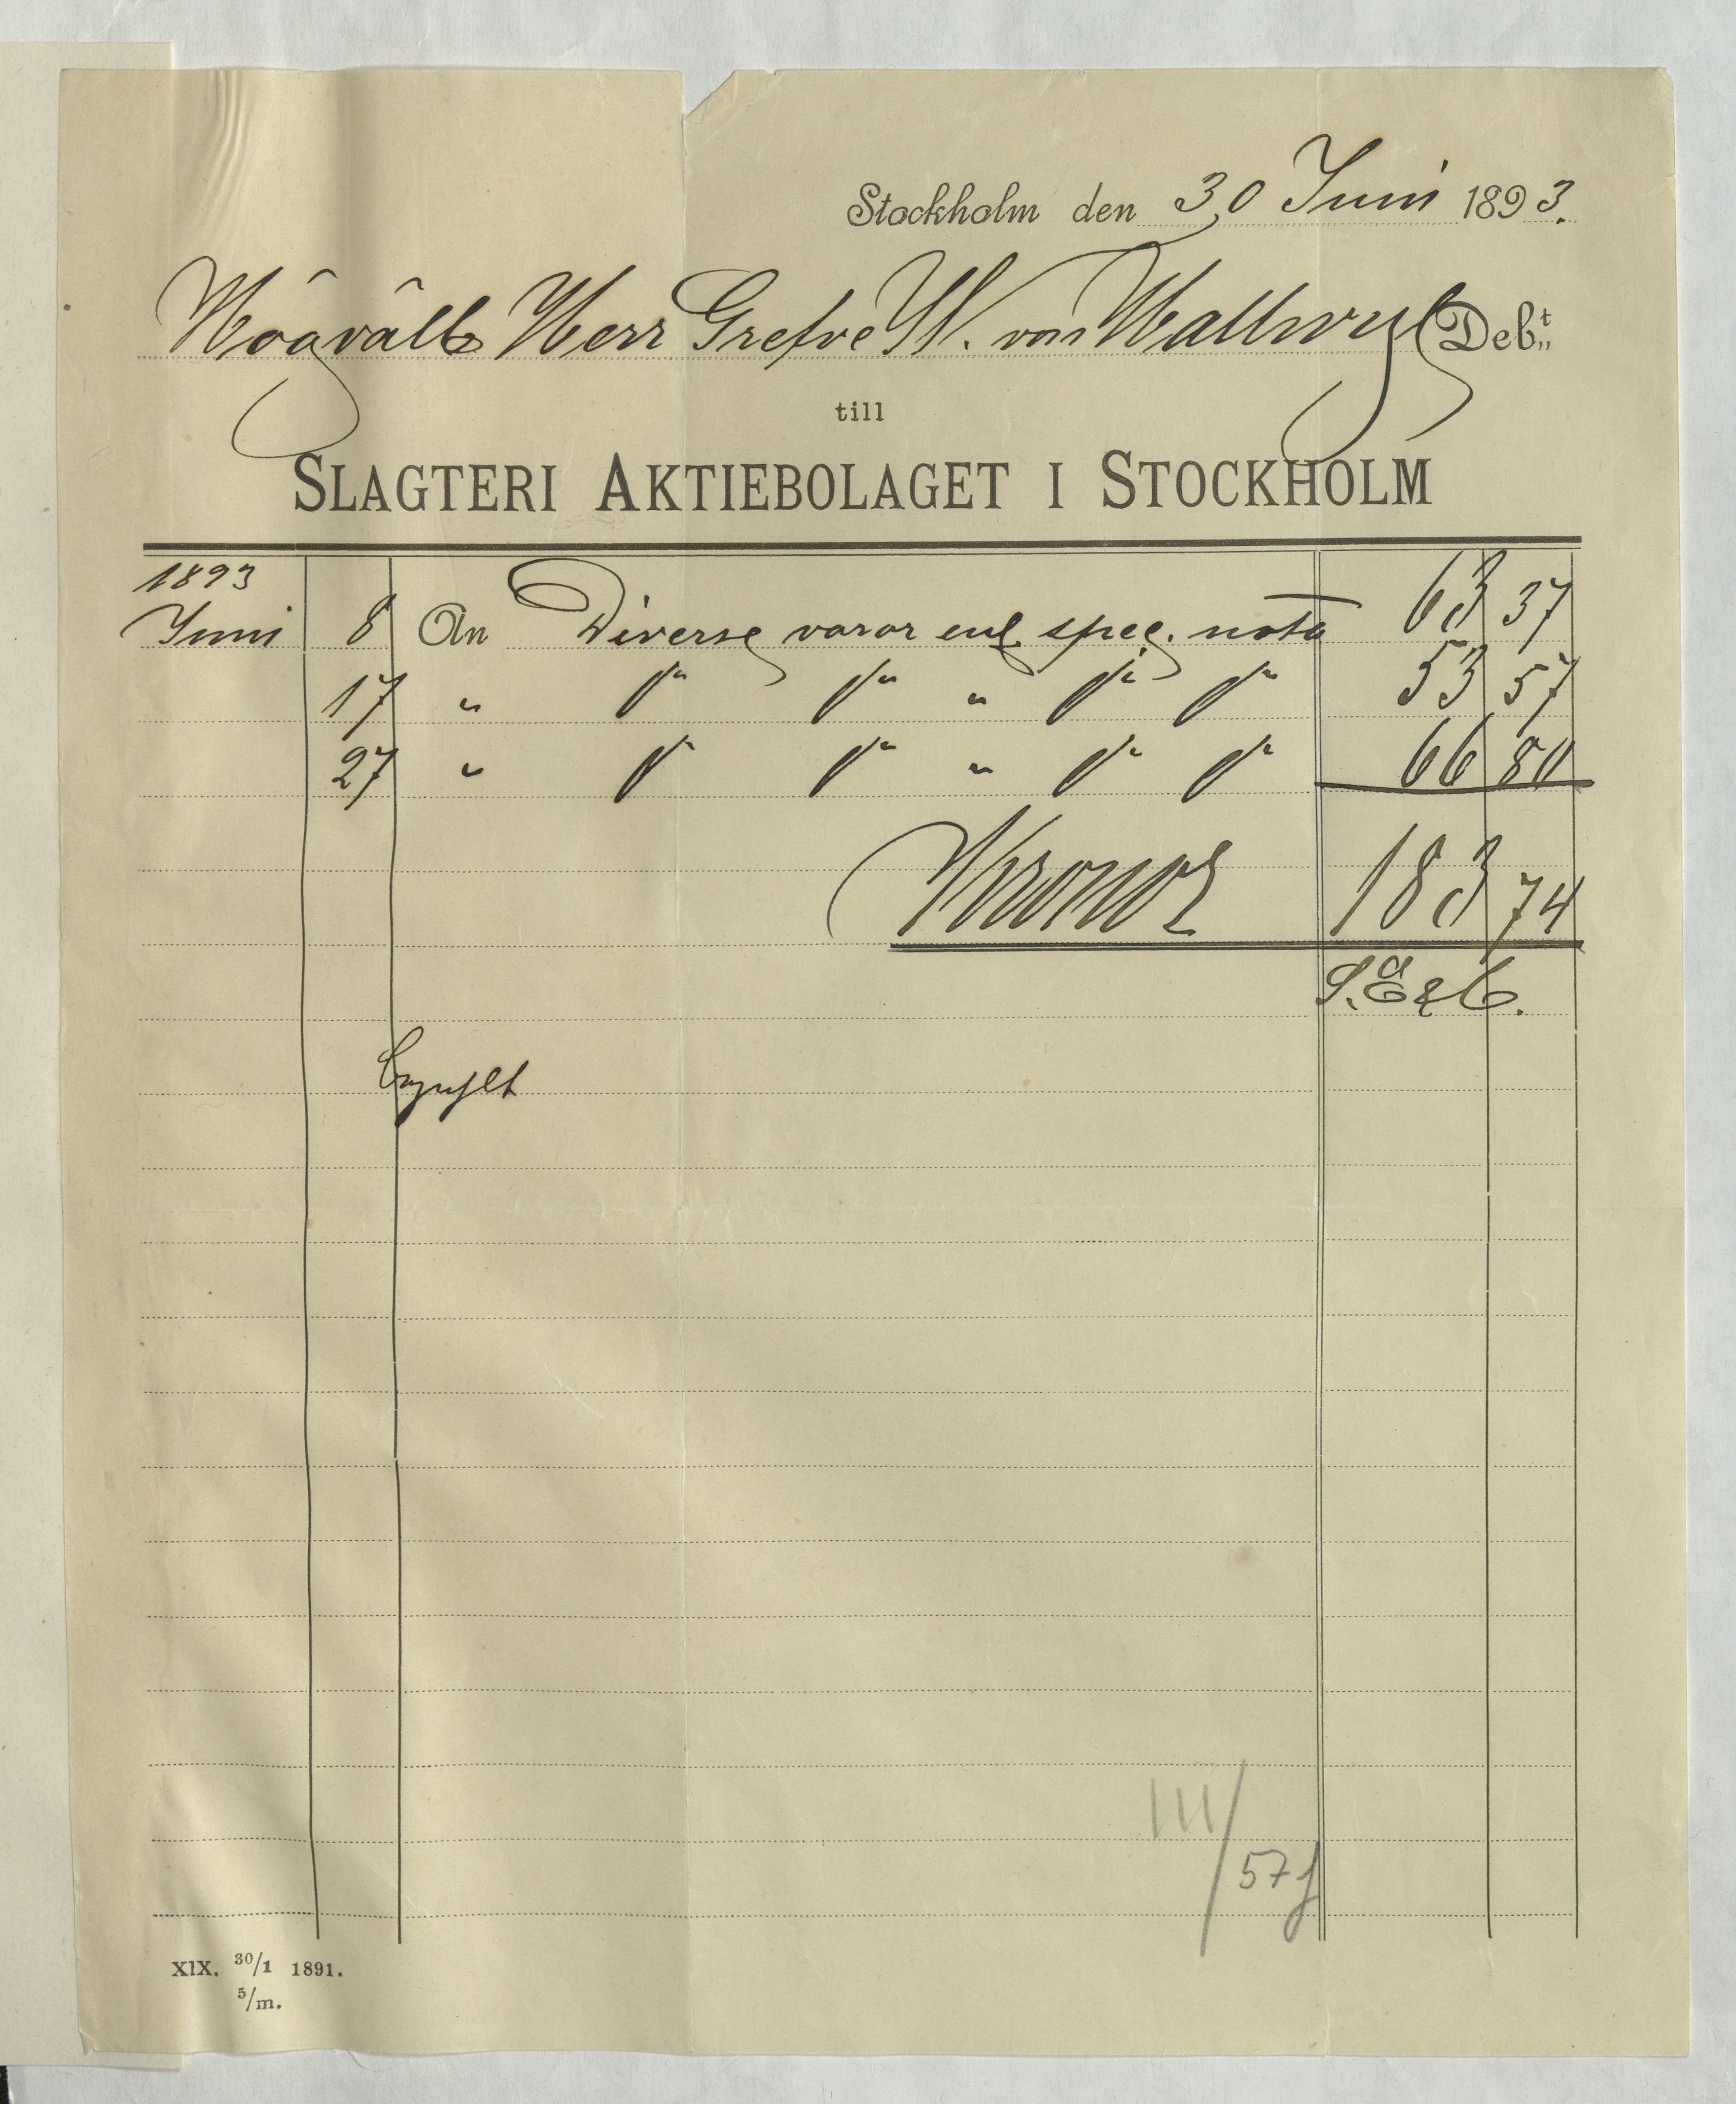 Stockholm den 30 Juni 1893.
Högvälb Herr Grefve W. von Hallwyl Deb:t
till
SLAGTERI AKTIEBOLAGET I STOCKHOLM
1893
Juni 8 An Diverse varor enl spec. nota 63 37
17 " d:o d:o " d:o d:o 53 57
27 " d:o d:o " d:o d:o 66 80
Kronor 183 74
S. E. & O.
III/57f
XIX. 30/1 1891.
5/m.